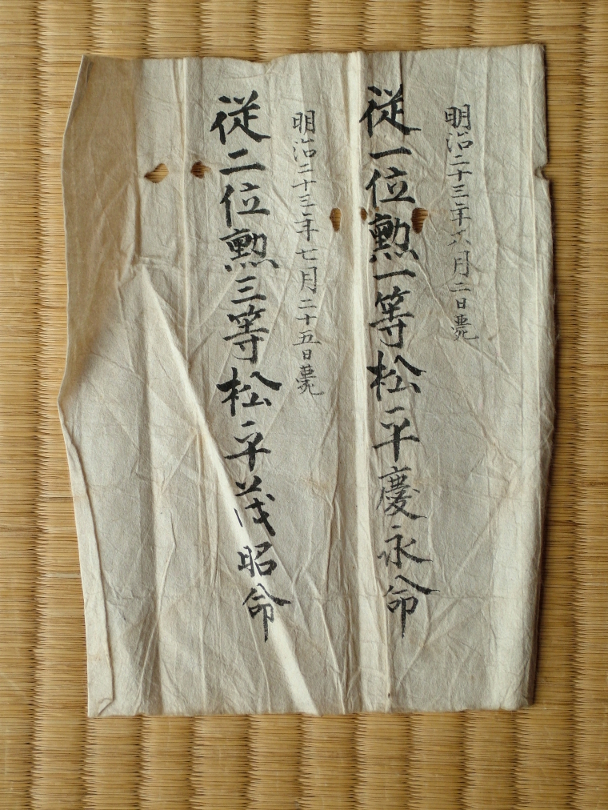 明治二十三年六月二日薨
從一位勲一等松平慶永命
明治二十三年七月二十五日薨
從二位勲三等松平茂昭命